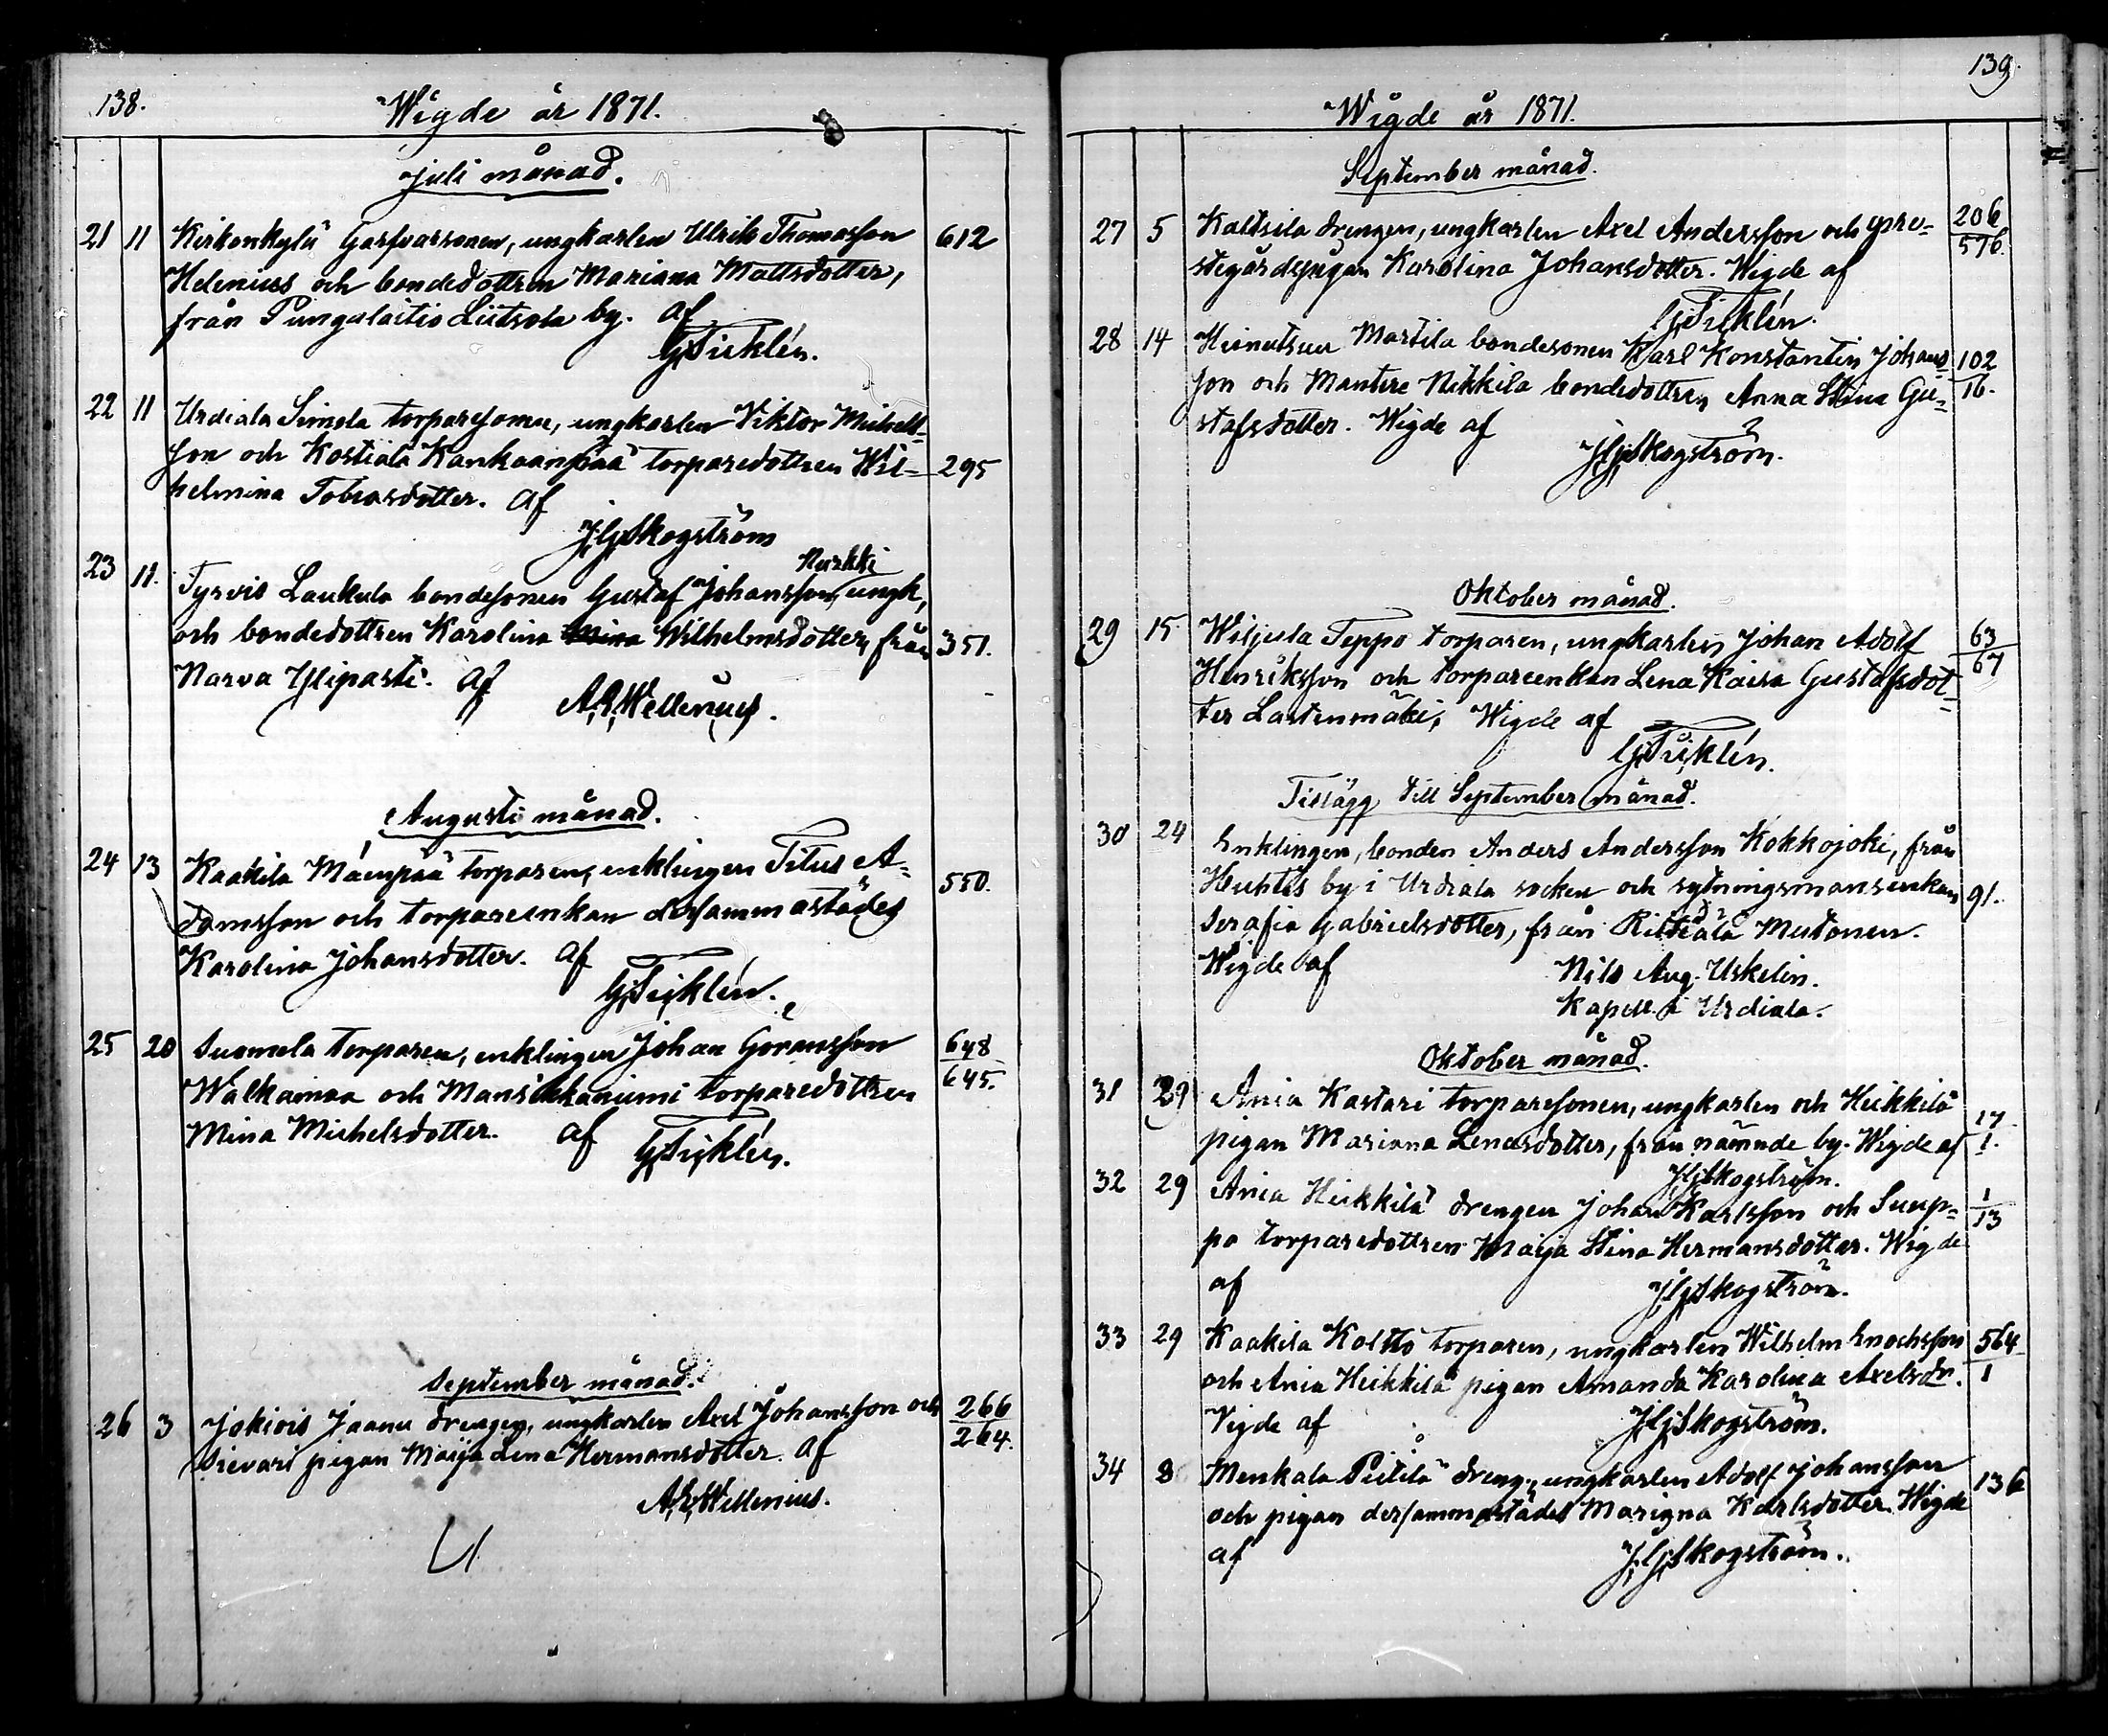 138.
Wigde år 1871.
Juli månad.
21 11 Kirkonkylä Garfvarsonen, ungkarlen Ulrik Thomasson 612
Helenius och bondedottren Mariana Mattsdotter,
från Pungalaitio Liitsola by. af
G. Ticklén.
22 11 Urdiala Simola torparesonen, ungkarlen Viktor Michells-
son och Kostiala Kankaanpää torparedottren Wil- 295
helmina Tobiasdotter. af
J. G. Skogström
23 11. Tyrvis Laukula bondesonen Gustaf Johansson Nurkki, ungk,
och bondedottren Karolina Mina Wilhelmsdotter, från 351.
Narva Yliparti. af
A. E. Wellenius.
Augusti månad.
24 13 Kaakila Mäenpää torparen, enklingen Titus A-
damsson och torpareenkan dersammastädes 550.
Karolina Johansdotter. af
G. Ticklén.
25 20 Suomela torparen, enklingen Johan Göransson 648
Walkamaa och Mansikkaniemi torparedottren 645.
Mina Michelsdotter. af G. Ticklén.
September månad.
26 3 Jokiois Jaanu drengen, ungkarlen Axel Johansson och 266
Sievari pigan Maija Lena Hermansdotter. af 264.
A. E. Wellenius.
139.
Wigde år 1871.
September månad.
27 5 Kaltsila drengen, ungkarlen Axel Andersson och pro- 206
stegårdspigan Karolina Johansdotter. Wigde af 576.
G. Ticklén.
28 14 Heinutsuu Martila bondesonen Karl Konstantin Johans- 102
son och Mantere Nikkila bondedottren Anna Stina Gu- 16.
stafsdotter. Wigde af
J. G. Skogström.
Oktober månad.
29 15 Wiljula Teppo torparen, ungkarlen Johan Adolf 63
Henriksson och torpareenkan Lena Kaisa Gustafsdot- 67
ter Lastenmäki, Wigde af
G. Ticklén.
Tillägg till September månad.
30 24 Enklingen, bonden Anders Andersson Kokkojoki, från
Huhtis by i Urdiala socken och sytningsmansenkan 91.
Serafia Gabrielsdotter, från Rittiälä Mutonen.
Wigde af Nils Aug. Uskelin.
Kapell. i Urdiala.
Oktober månad.
31 29 Ania Kastari torparesonen, ungkarlen och Heikkilä 17
pigan Marianna Lenasdotter, från nämnde by. Wigde af 1.
J. G. Skogström.
32 29 Ania Heikkilä drengen Johan Karlsson och Sump- 1
po torparedottren Maija Stina Hermansdotter. Wigde 13
af J. G. Skogström.
33 29 Kaakila Koltto torparen, ungkarlen Wilhelm Enochsson 564
och Ania Heikkilä pigan Amanda Karolina Axelsdr. 1
Vigde af J. G. Skogström.
34 8 Menkala Pietilä dreng., ungkarlen Adolf Johansson 136
och pigan dersammastädes Marigna Karlsdotter. Wigde
af J. G. Skogström.